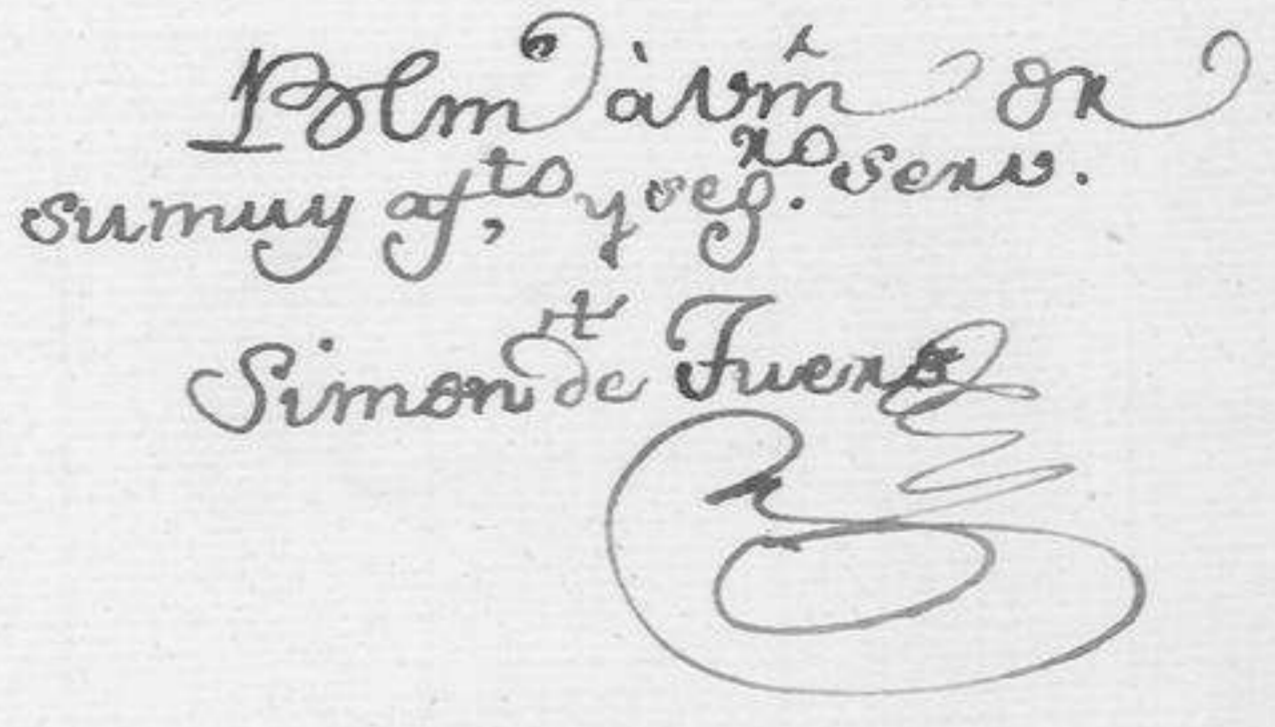 Blm à Vm̃ Sr
su muy af,to y seg.ro serv.
Simon de Fuero